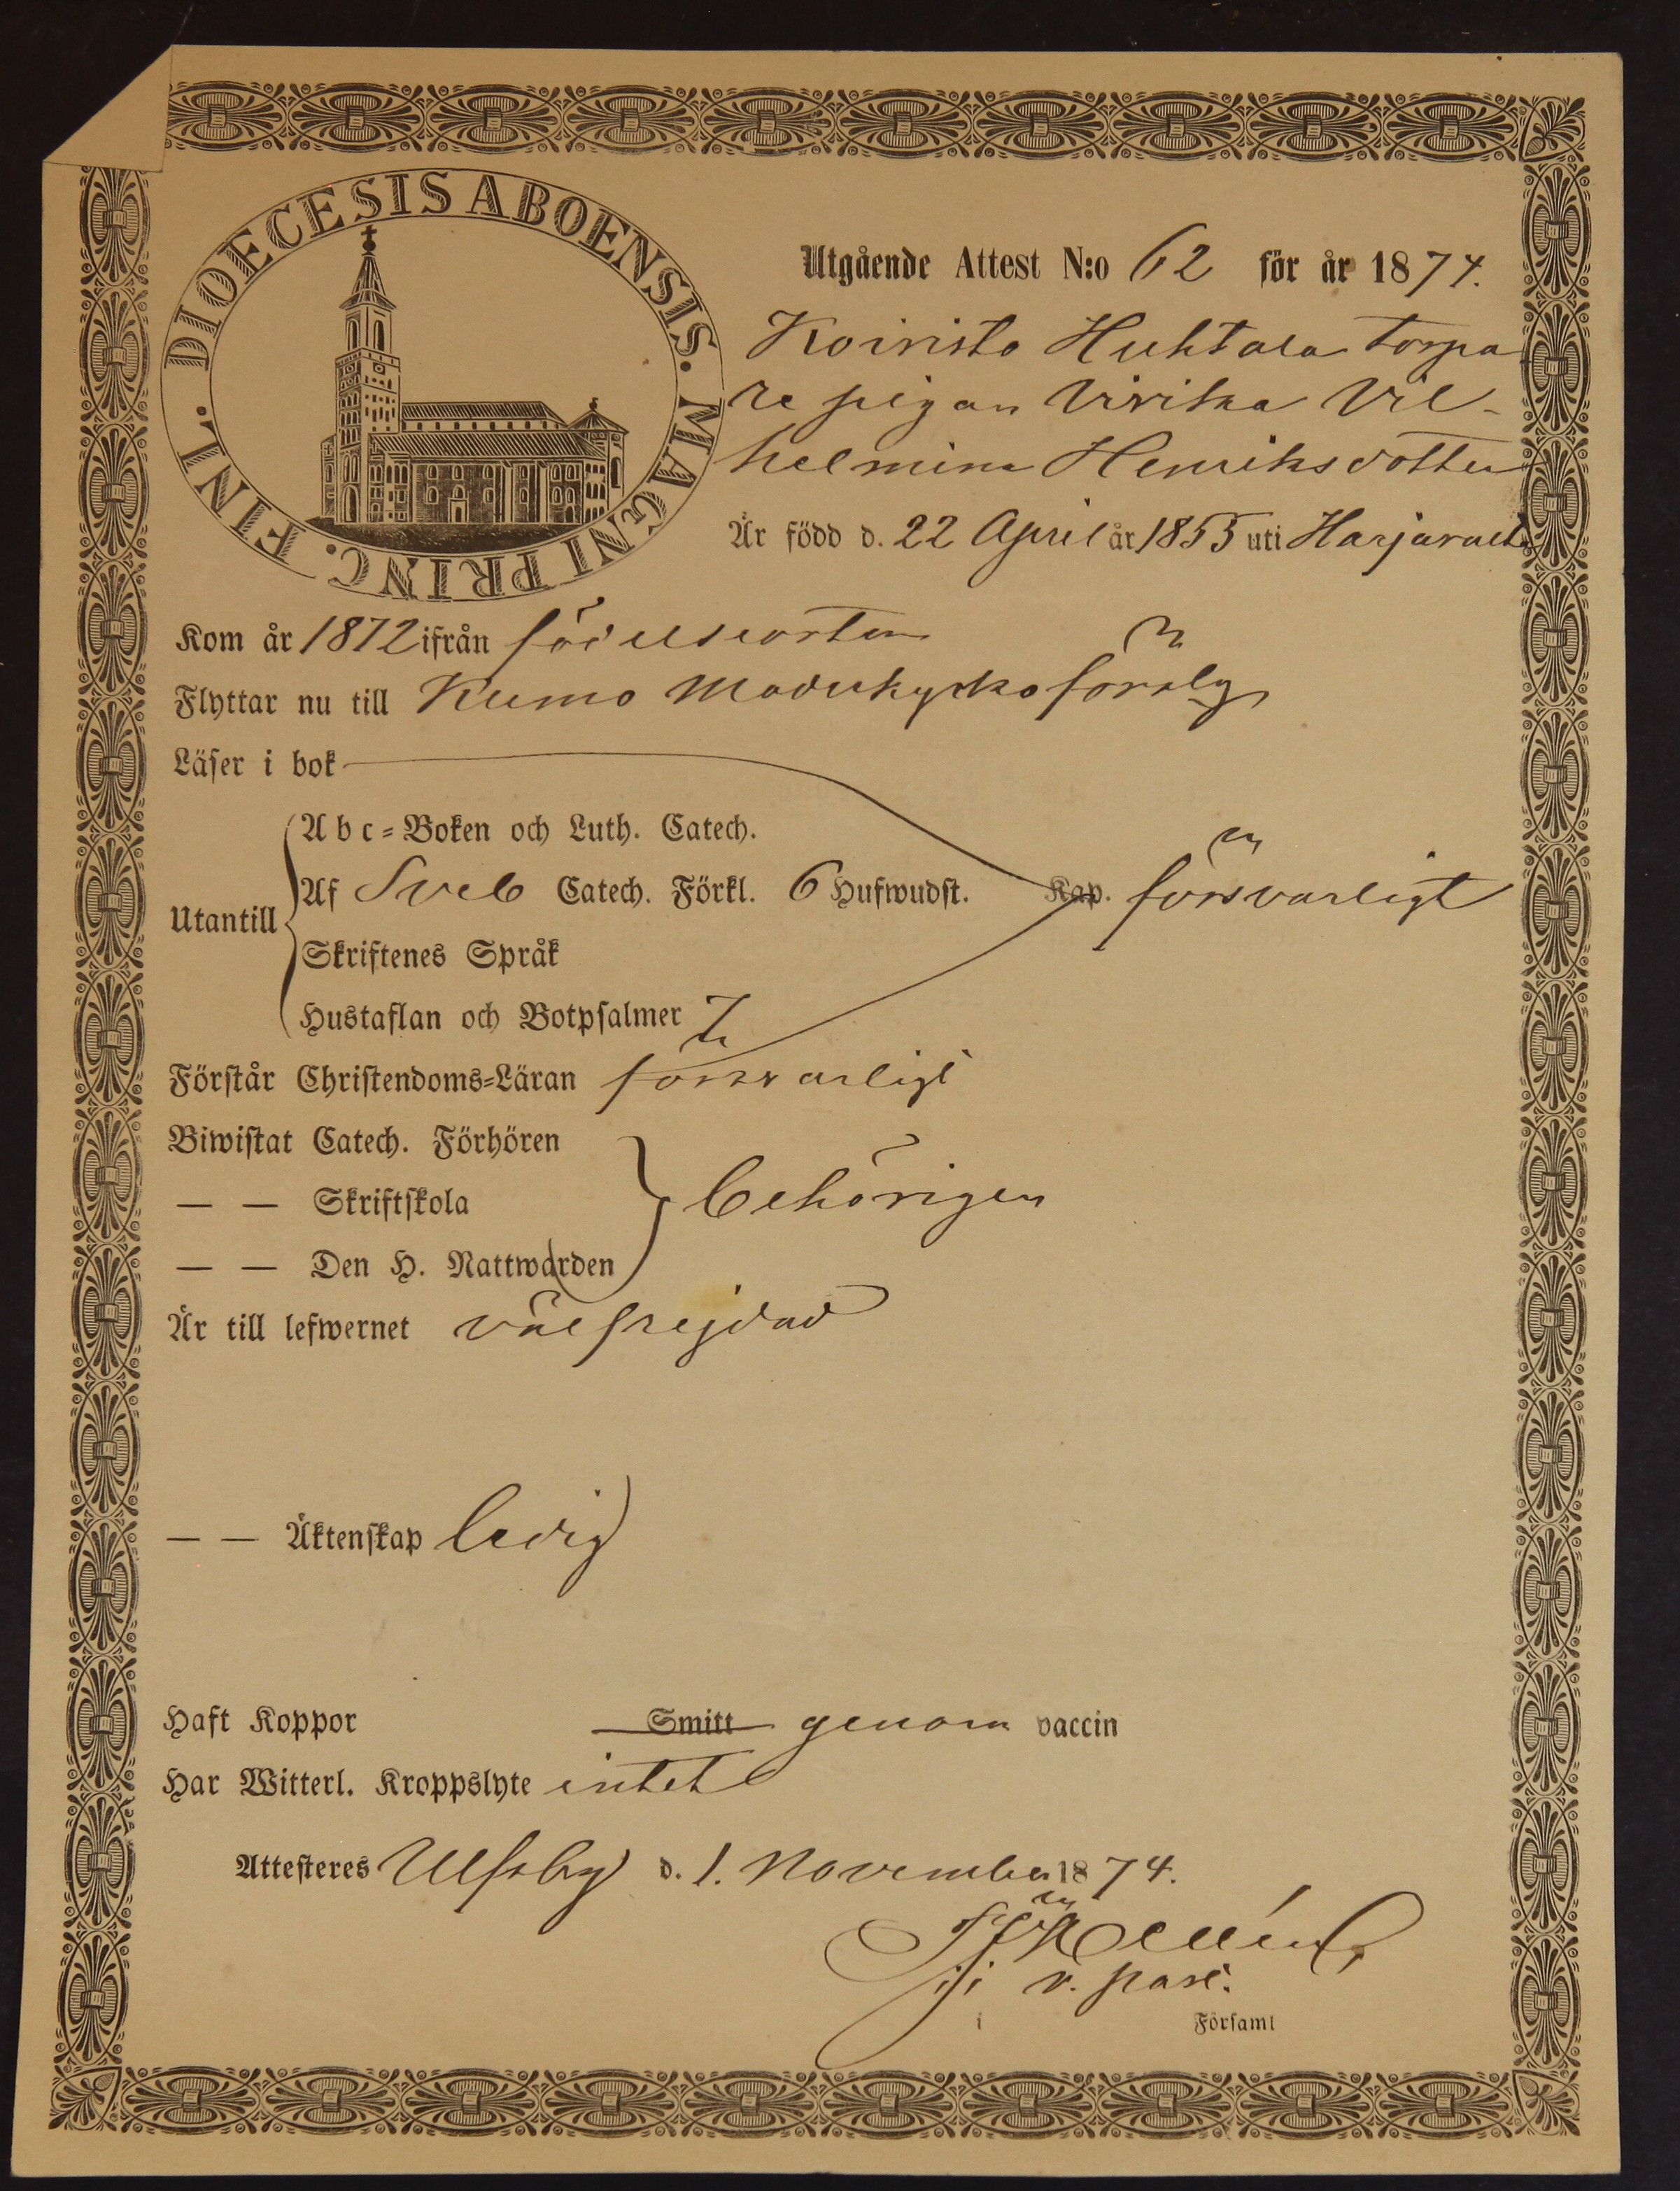 DIOECESIS ABOENSIS. MAGNI PRINC. FINL.
Utgående Attest N:o 62 för år 1874.
Koivisto Huhtala torpa
re pigan Vivika Vil-
helmina Henriksdotter
Är född d. 22 April år 1853 uti Harjavalta
Kom år 1872 ifrån födelseorten
Flyttar nu till Kumo Moderkyrko församlg
Läser i bok
Abc-Boken och Luth. Catech.
Utantill Af Sveb Catech. Förkl. 6 Hufwudst. Kap. försvarligt
Skriftenes Språk
Hustaflan och Botpsalmer 7
Förstår Christendoms-Läran försvarligt
Biwistat Catech. Förhören
— — Skriftskola behörigen
— — Den H. Nattwarden
Är till lefwernet välfrejdad
— — Äktenskap ledig
Haft Koppor Smitt genom vaccin
Har Witterl. Kroppslyte intet
Attesteres Ulfsby d. 1. November 1874.
v. past.
i Församl